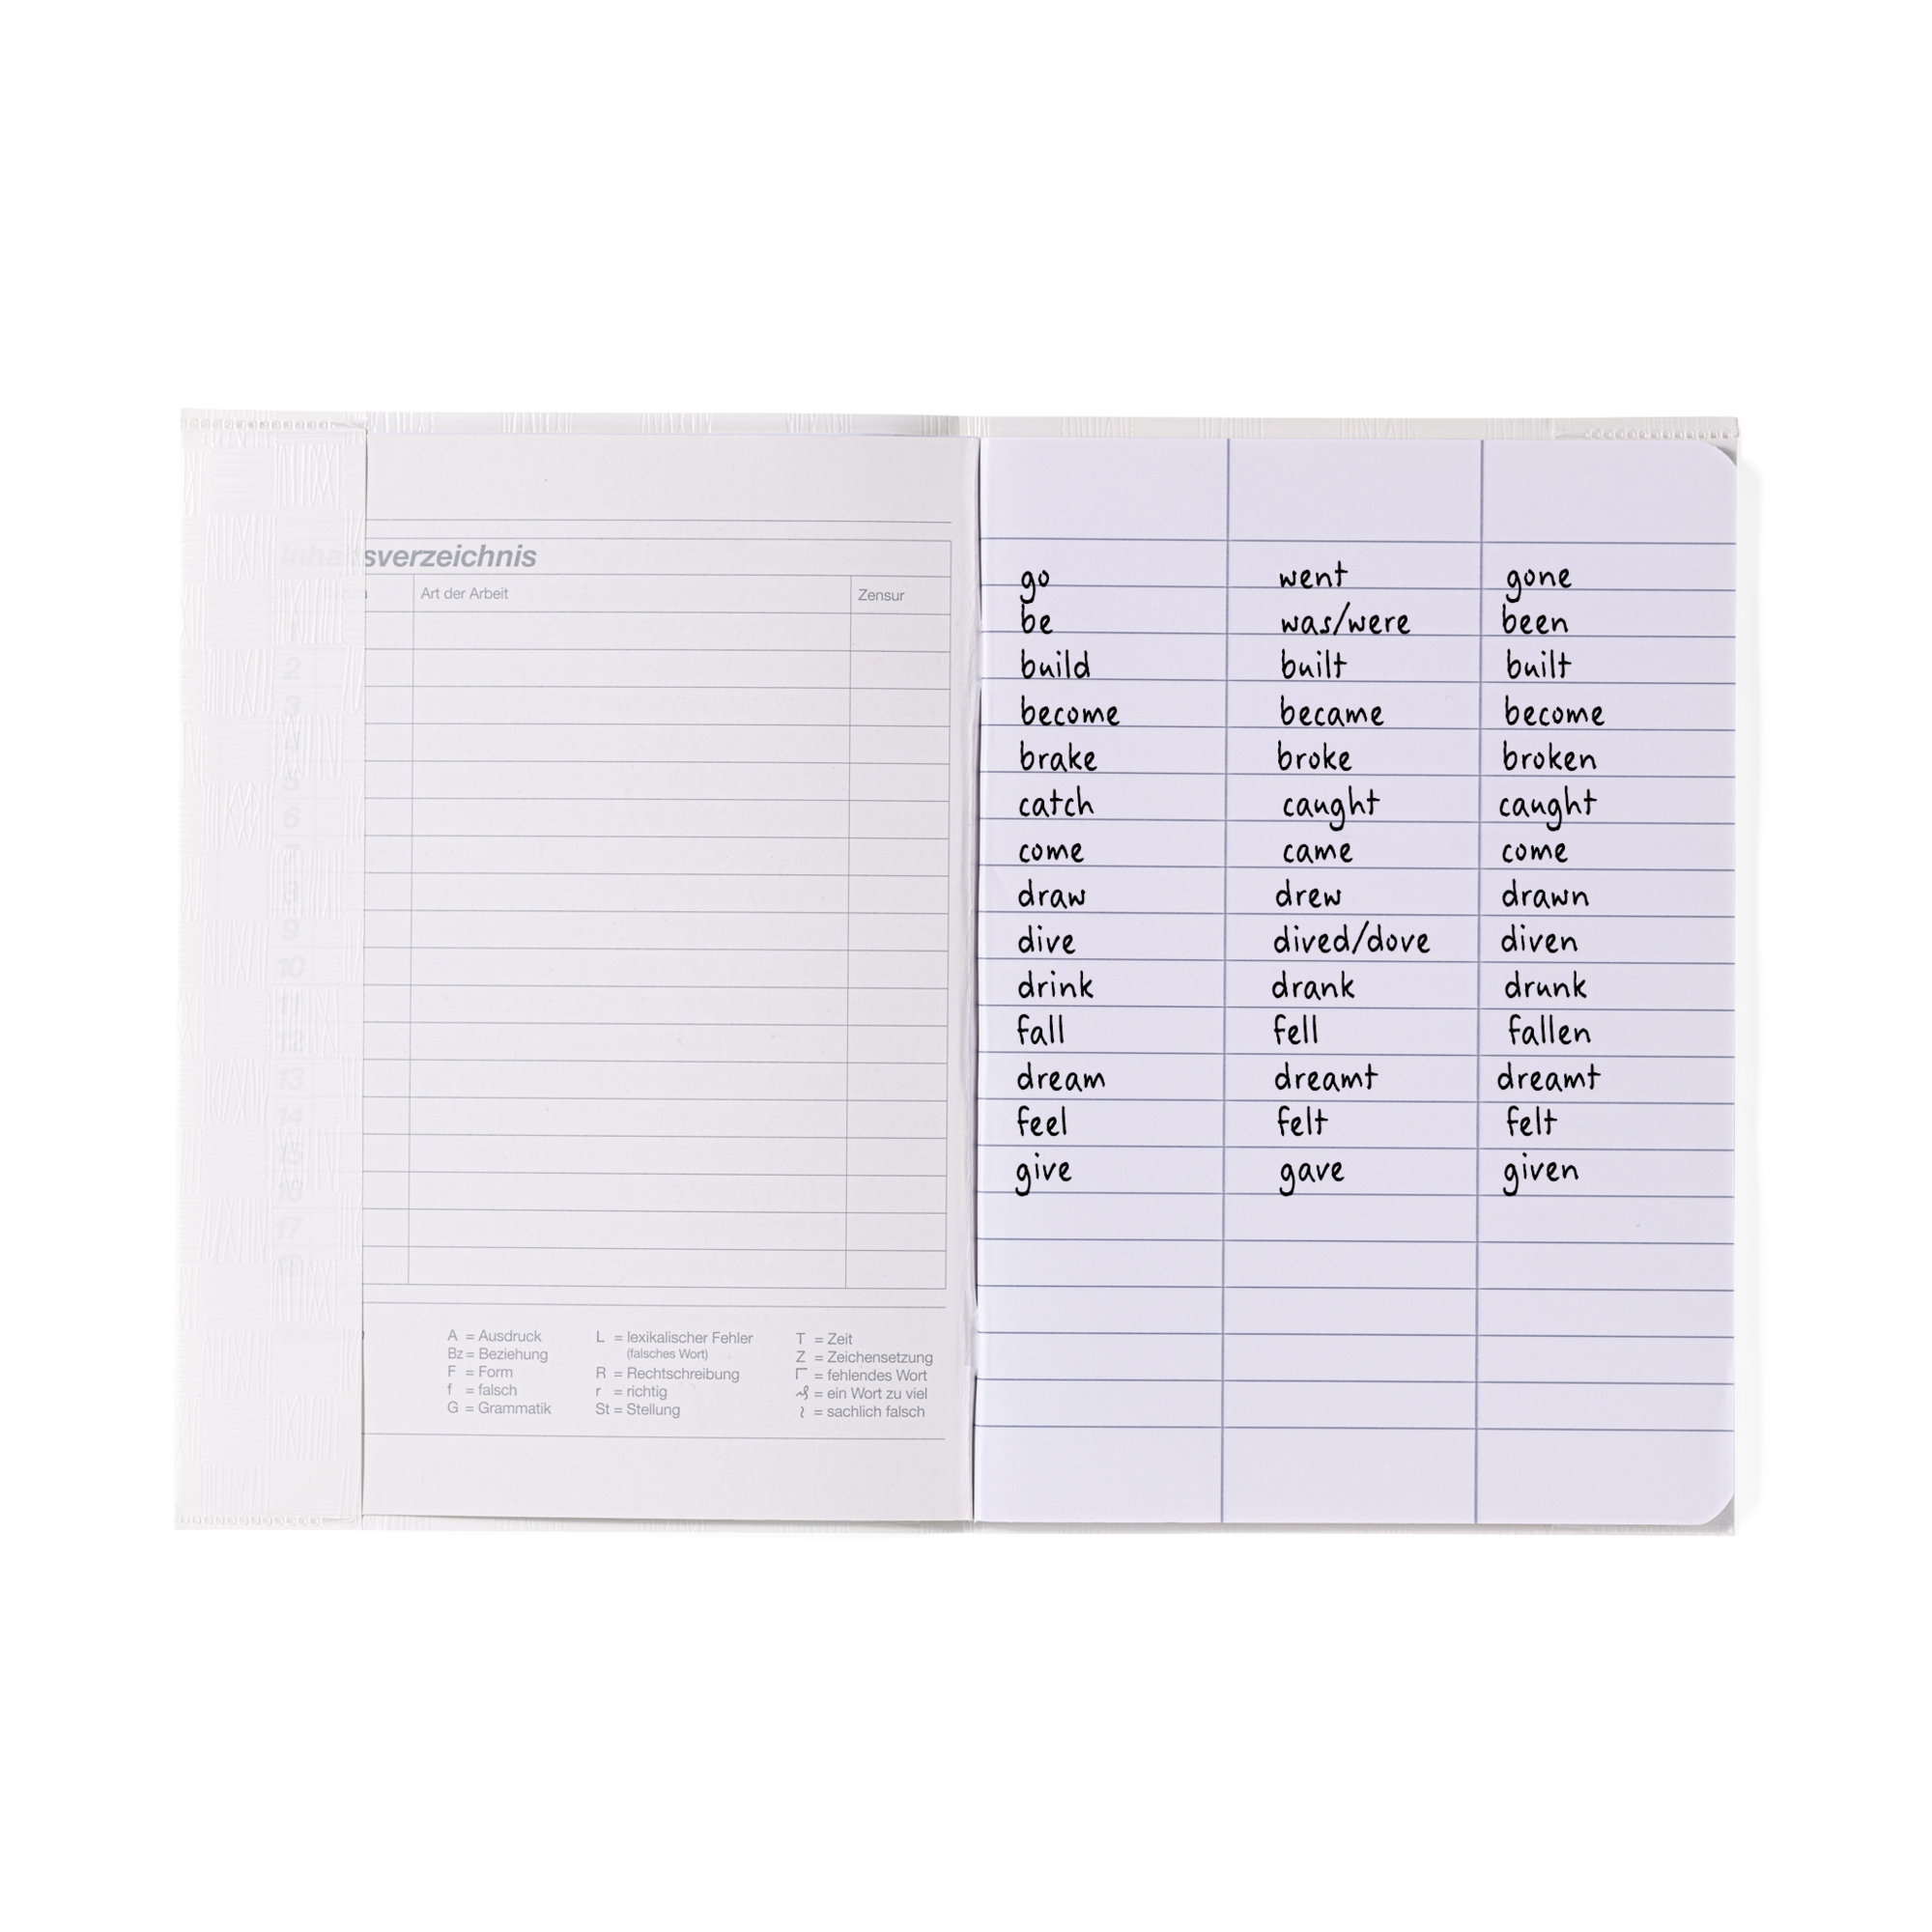 Inhaltsverzeichnis
Art der Arbeit Zensur
1
2
3
4
5
6
7
8
9
10
11
12
13
14
15
16
17
18
A = Ausdruck L = lexikalischer Fehler T = Zeit
Bz = Beziehung (falsches Wort) Z = Zeichensetzung
F = Form R = Rechtschreibung Γ = fehlendes Wort
f = falsch r = richtig = ein Wort zu viel
G = Grammatik St = Stellung = sachlich falsch
go went gone
be was/were been
build built built
become became become
brake broke broken
catch caught caught
come came come
draw drew drawn
dive dived/dove diven
drink drank drunk
fall fell fallen
dream dreamt dreamt
feel felt felt
give gave given